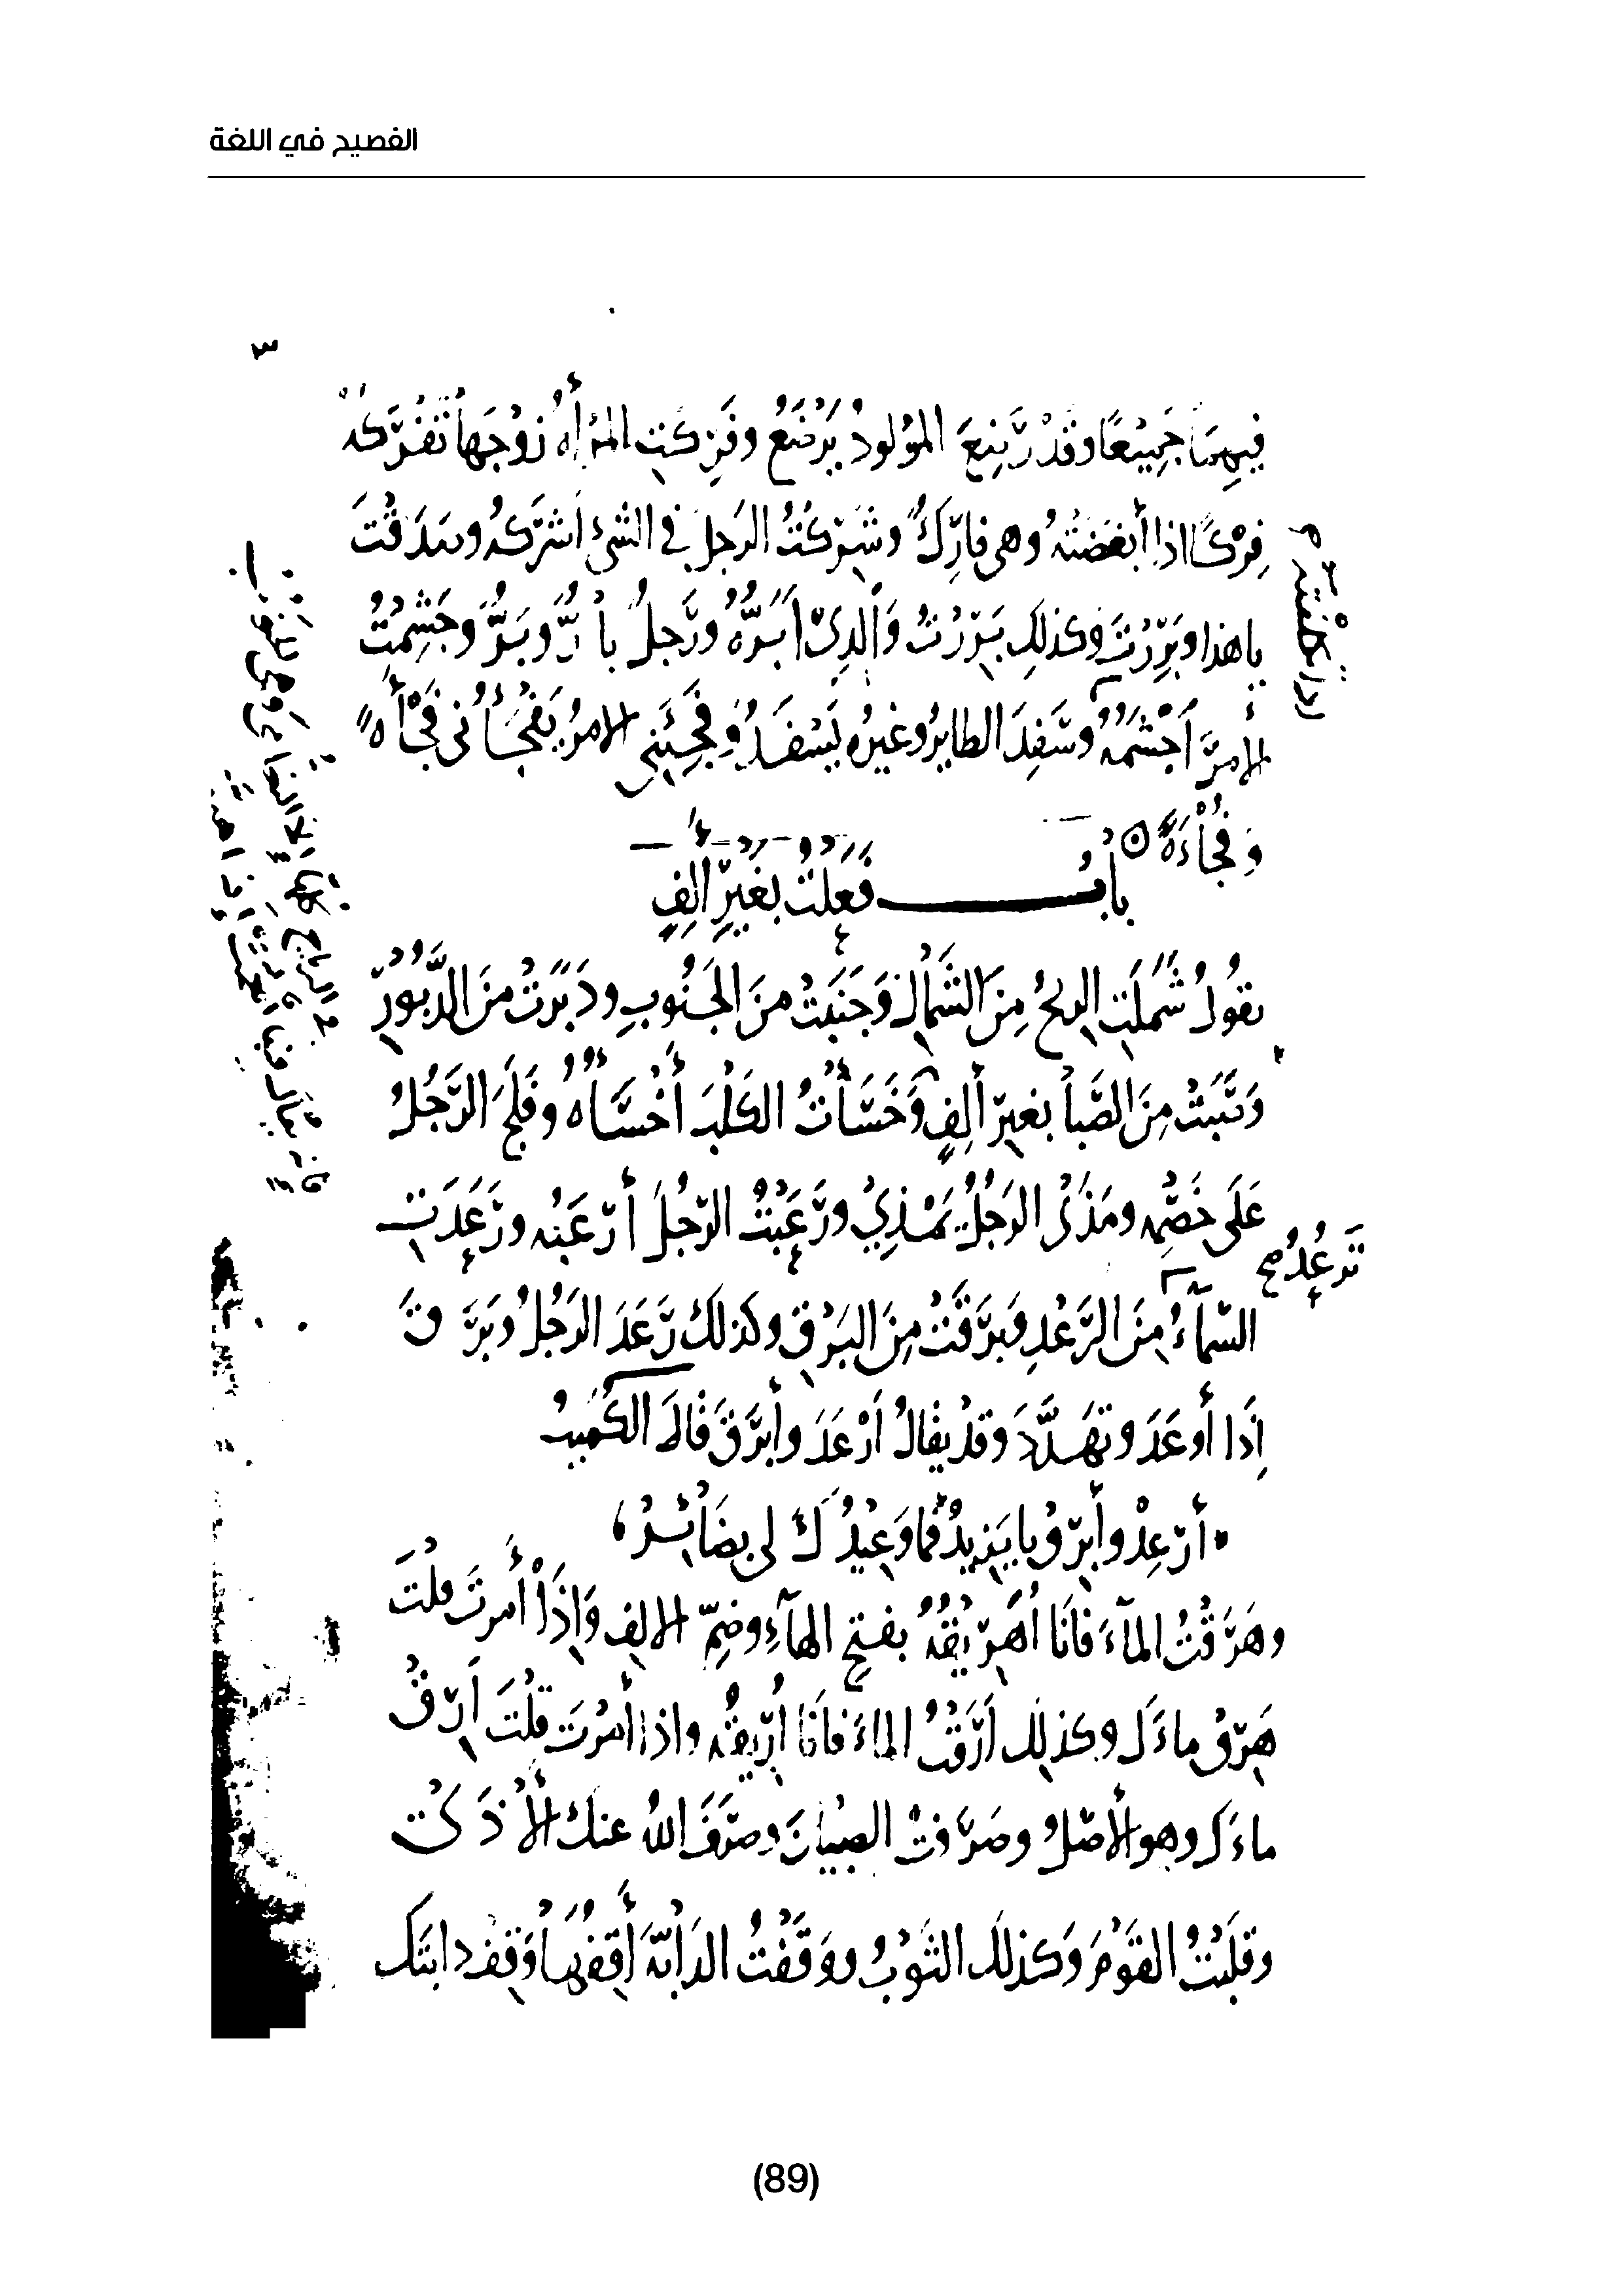 الفصيح في اللغة
٣
فِيهِمَا جَمِيْعًا وقَدْ رَضِعَ المَوْلودُ يَرْضَعُ وفَرِكَتِ المَرْأَةُ زَوْجَهَا تَفْرَكُهُ
فِرْكًا اذا أَبْغَضَتْهُ وهى فارِكٌ وشَرِكْتُ الرَجلَ في الشئِ أَشْرَكُهُ وصَدَقْتَ
يا هذا وبَرِرْتَ وكذلِكَ بَرِرْتُ وَالِدِىّ أَبَرُّهُ ورَجلٌ بارٌّ وبَرٌّ وجَشِمْتُ
الامرَ أَجْشَمُهُ وسَفِدَ الطايِرُ وغيرُه يَسْفَدُ وفَجِئَنى الامرُ يَفْجَأُنى فَجْأَةً
وَفُجَاءَةً
بابُ فَعَلْتُ بغَيْرِ الِفٍ
تقُولُ شَمَلَتِ الريحُ مِنَ الشَّمَالِ وَجَنَبَتْ منَ الجَنُوبِ ودَبَرَتْ منَ الدَّبُورِ
وَصَبَتْ مِنَ الصَّبا بغيرِ أَلِفٍ وَخَسَأْتُ الكَلْبَ أَخْسَأُهُ وفَلَجَ الرَّجُلُ
عَلَى خَصْمِهِ ومَذَى الرَجُلُ يَمْذِي ورَعَبْتُ الرّجُلَ أَرْعَبُه ورَعَدَتِ
تَرعُدُ صح
السّمآءُ مِنَ الرَّعْدِ وَبَرَقَتْ مِنَ البَرْقِ وكذلكَ رَعَدَ الرَجُلُ وَبَرَقَ
إِذَا أَوعَدَ وتهَدَّدَ وقدْ يقالُ أَرْعَدَ وأَبْرَقَ قَالَ الكُمَيتُ
أَرْعِدْ وأَبْرِقْ يا يَزِيدُ فما وَعِيْدُكَ لى بِضَائِرْ
وهَرَقْتُ المآءَ فَانَا أُهَرِيقُهُ بفتحِ الهآءِ وضمِّ الالِفِ وَإِذَا أَمرتَ قلتَ
هَرِقْ ماءَكَ وكذلِكَ أَرَقْتُ الماءَ فانَا أُرِيقُه واذا أَمَرْتَ قلْتَ أَرِقْ
ماءَكَ وهو الأَصْلُ وصَرَفتُ الصِبْيانَ وصَرَفَ اللهُ عنكَ الأَذَى
وقَلَبْتُ القَوْمَ وَكذلكَ الثَوْبَ ووَقَفْتُ الدَابَّةَ أَقِفُها وَقِفْ دابتَك
(89)